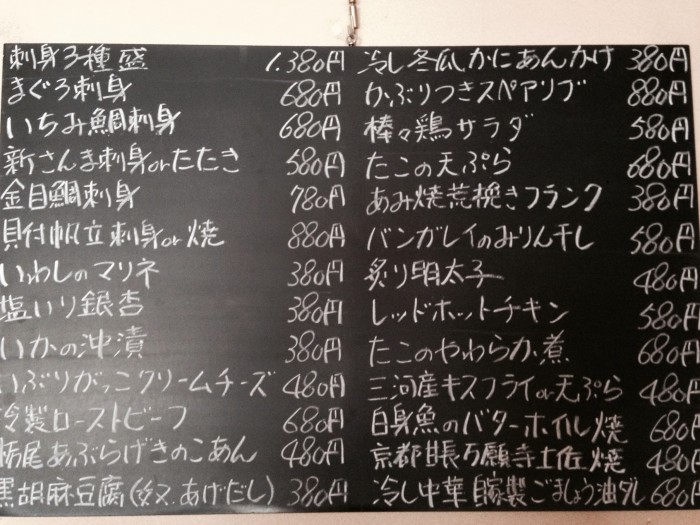 刺身3種盛 1.380円
まぐろ刺身 680円
いちみ鯛刺身 680円
新さんま刺身orたたき 580円
金目鯛刺身 780円
貝付帆立刺身or焼 880円
いわしのマリネ 380円
塩いり銀杏 380円
いかの沖漬 380円
いぶりがっこクリームチーズ 480円
冷製ローストビーフ 680円
栃尾あぶらげきのこあん 480円
黒胡麻豆腐(又、あげだし) 380円
冷し冬瓜かにあんかけ 380円
かぶりつきスペアリブ 880円
棒々鶏サラダ 580円
たこの天ぷら 680円
あみ焼荒挽きフランク 380円
バンガレイのみりん干し 580円
炙り明太子 480円
レッドホットチキン 580円
たこのやわらか煮 680円
三河産キスフライor天ぷら 480円
白身魚のバターホイル焼 680円
京都甘長万願寺土佐焼 480円
冷し中華自家製ごましょう油ダレ 680